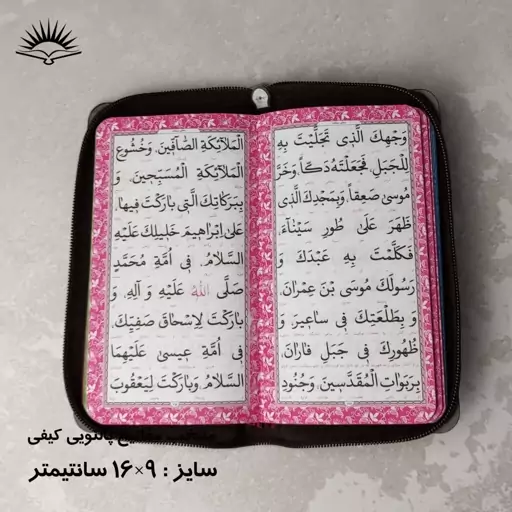 وَجْهِكَ الَّذی تَجَلَّیْتَ بِهِ
لِلْجَبَلِ فَجَعَلْتَهُ دَکّاً، وَخَرَّ
مُوسیٰ صَعِقاً، وَبِمَجْدِكَ الَّذی
ظَهَرَ عَلیٰ طُورِ سَیْنٰآءَ،
فَکَلَّمْتَ بِهِ عَبْدَكَ وَ
رَسُولَكَ مُوسَی بْنَ عِمْرانَ،
وَ بِطَلْعَتِكَ فی ساعیرَ وَ
ظُهُورِكَ فی جَبَلِ فارانَ،
بِرَبَواتِ الْمُقَدَّسینَ وَجُنُودِ
الْمَلآئِکَةِ الصّٰآفّینَ، وَخُشُوعِ
الْمَلآئِکَةِ الْمُسَبِّحینَ، وَ
بِبَرَکاتِكَ الَّتی بارَکْتَ فیها
عَلیٰ اِبْراهیمَ خَلیلِكَ عَلَیْهِ
السَّلامُ، فی اُمَّةِ مُحَمَّدٍ
صَلَّی اللهُ عَلَیْهِ وَ آلِهِ، وَ
بارَکْتَ لِاِسْحاقَ صَفِیِّكَ،
فی اُمَّةِ عیسیٰ عَلَیْهِمَا
السَّلامُ، وَبارَکْتَ لِیَعْقُوبَ
پالتویی کیفی
سایز : ۹×۱۶ سانتیمتر